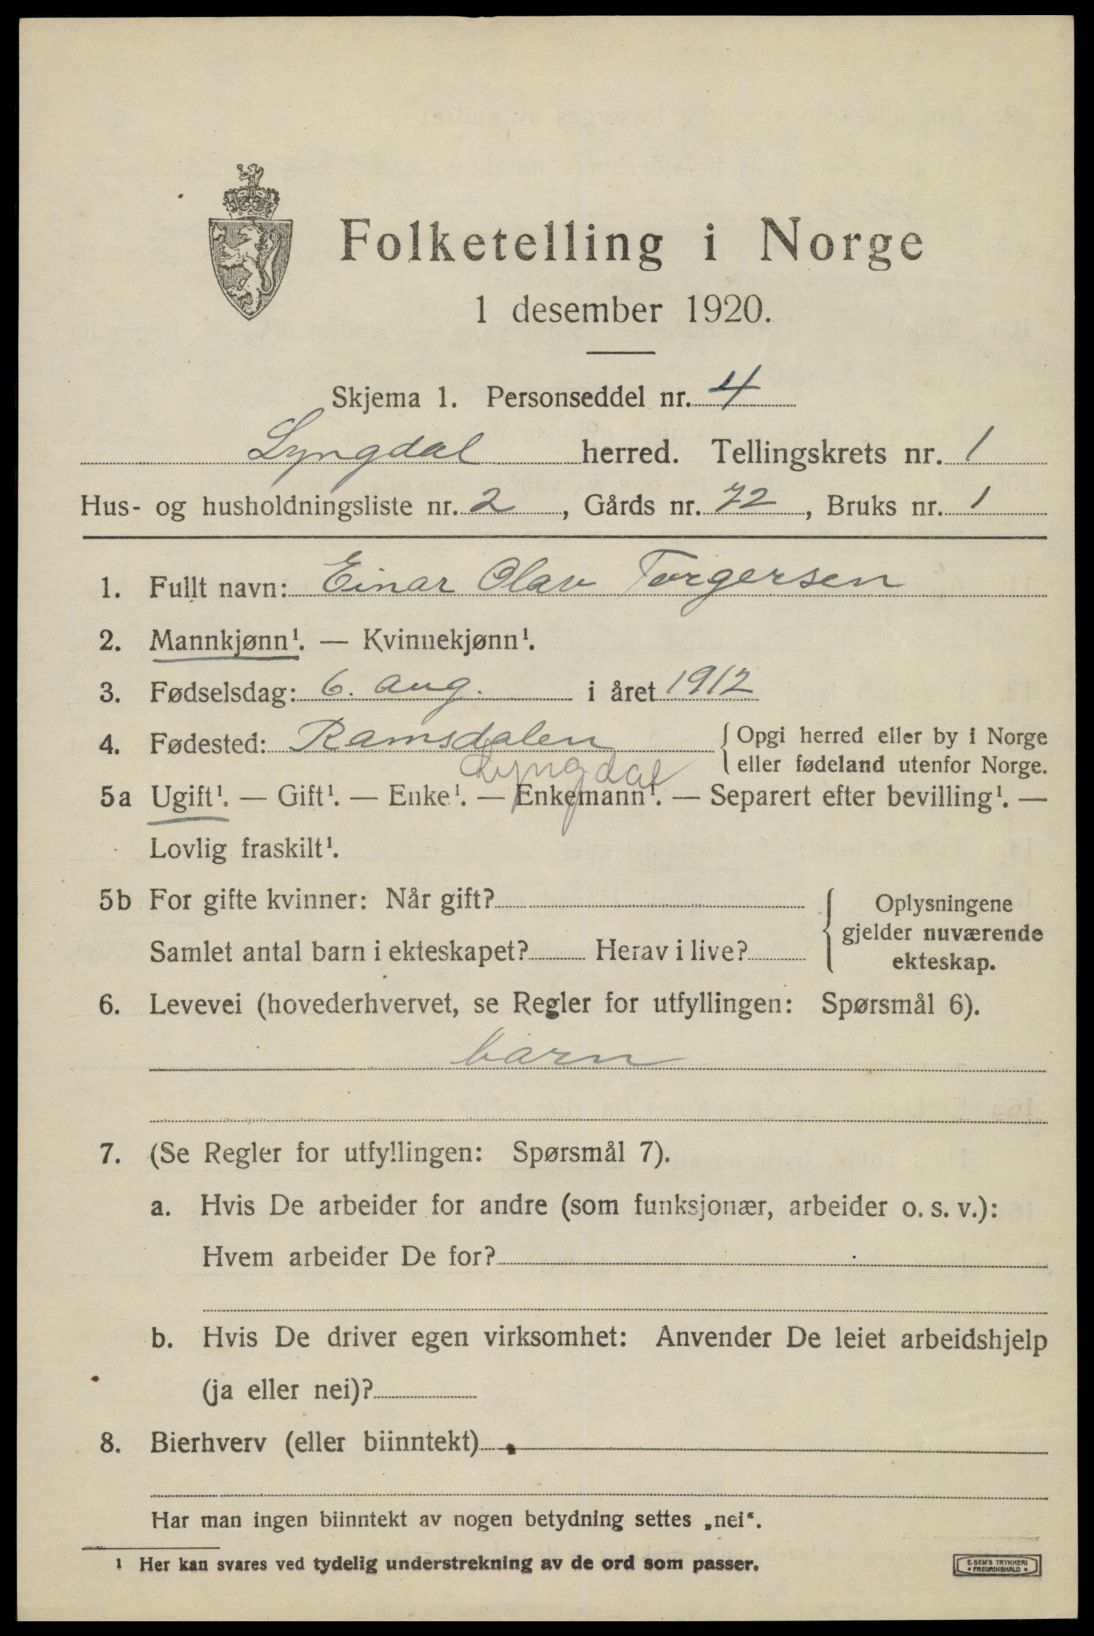 Folketelling i Norge
1 desember 1920.
Skjema 1. Personseddel nr. 4
Lyngdal herred. Tellingskrets nr. 1
Hus- og husholdningsliste nr. 2, Gårds nr. 72, Bruks nr. 1
1. Fullt navn: Einar Olav Torgersen
2. Mannkjønn¹. — Kvinnekjønn¹.
3. Fødselsdag: 6. aug. i året 1912
4. Fødested: Ramsdalen {Opgi herred eller by i Norge
eller fødeland utenfor Norge.
Lyngdal
5a Ugift¹. — Gift¹. — Enke¹. — Enkemann¹. — Separert efter bevilling¹. —
Lovlig fraskilt¹.
5b For gifte kvinner: Når gift? { Oplysningene
gjelder nuværende
ekteskap.
Samlet antal barn i ekteskapet? Herav i live?
6. Levevei (hovederhvervet, se Regler for utfyllingen: Spørsmål 6).
barn
7. (Se Regler for utfyllingen: Spørsmål 7).
a. Hvis De arbeider for andre (som funksjonær, arbeider o. s. v.):
Hvem arbeider De for?
b. Hvis De driver egen virksomhet: Anvender De leiet arbeidshjelp
(ja eller nei)?
8. Bierhverv (eller biinntekt)
Har man ingen biinntekt av nogen betydning settes „nei".
¹ Her kan svares ved tydelig understrekning av de ord som passer.
E. SEM'S TRYKKERI
• FREDRIKSHALD •